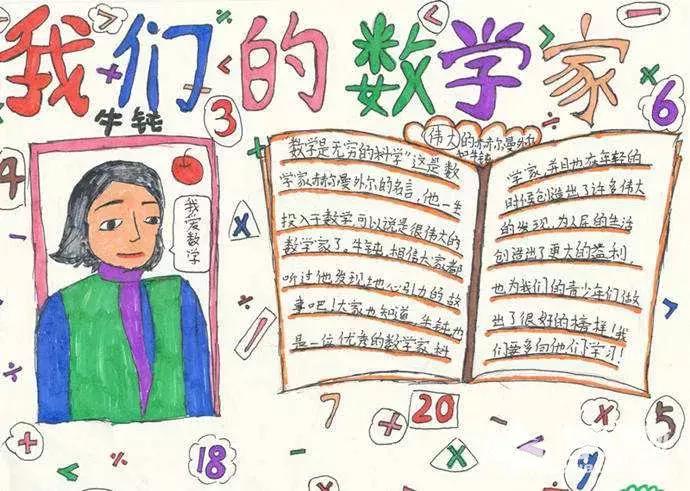 我们的数学家
牛钝
3
6
4
我爱数学
伟大的赫尔曼外尔
和牛钝
"数学是无穷的科学"这是数
学家赫尔曼外尔的名言,他一生
投入于数学可以说是很伟大的
数学家了。牛钝,相信大家都
听过他发现地心引力的故
事吧!大家也知道,牛钝也
是一位优秀的数学家,科
学家,并且也在年轻的
时候创造出了许多伟大
的发现,为人层的生活
创造出了更大的溢利,
也为我们的青少年们做
出了很好的榜样!我
们要多向他们学习!
7
20
5
18
9